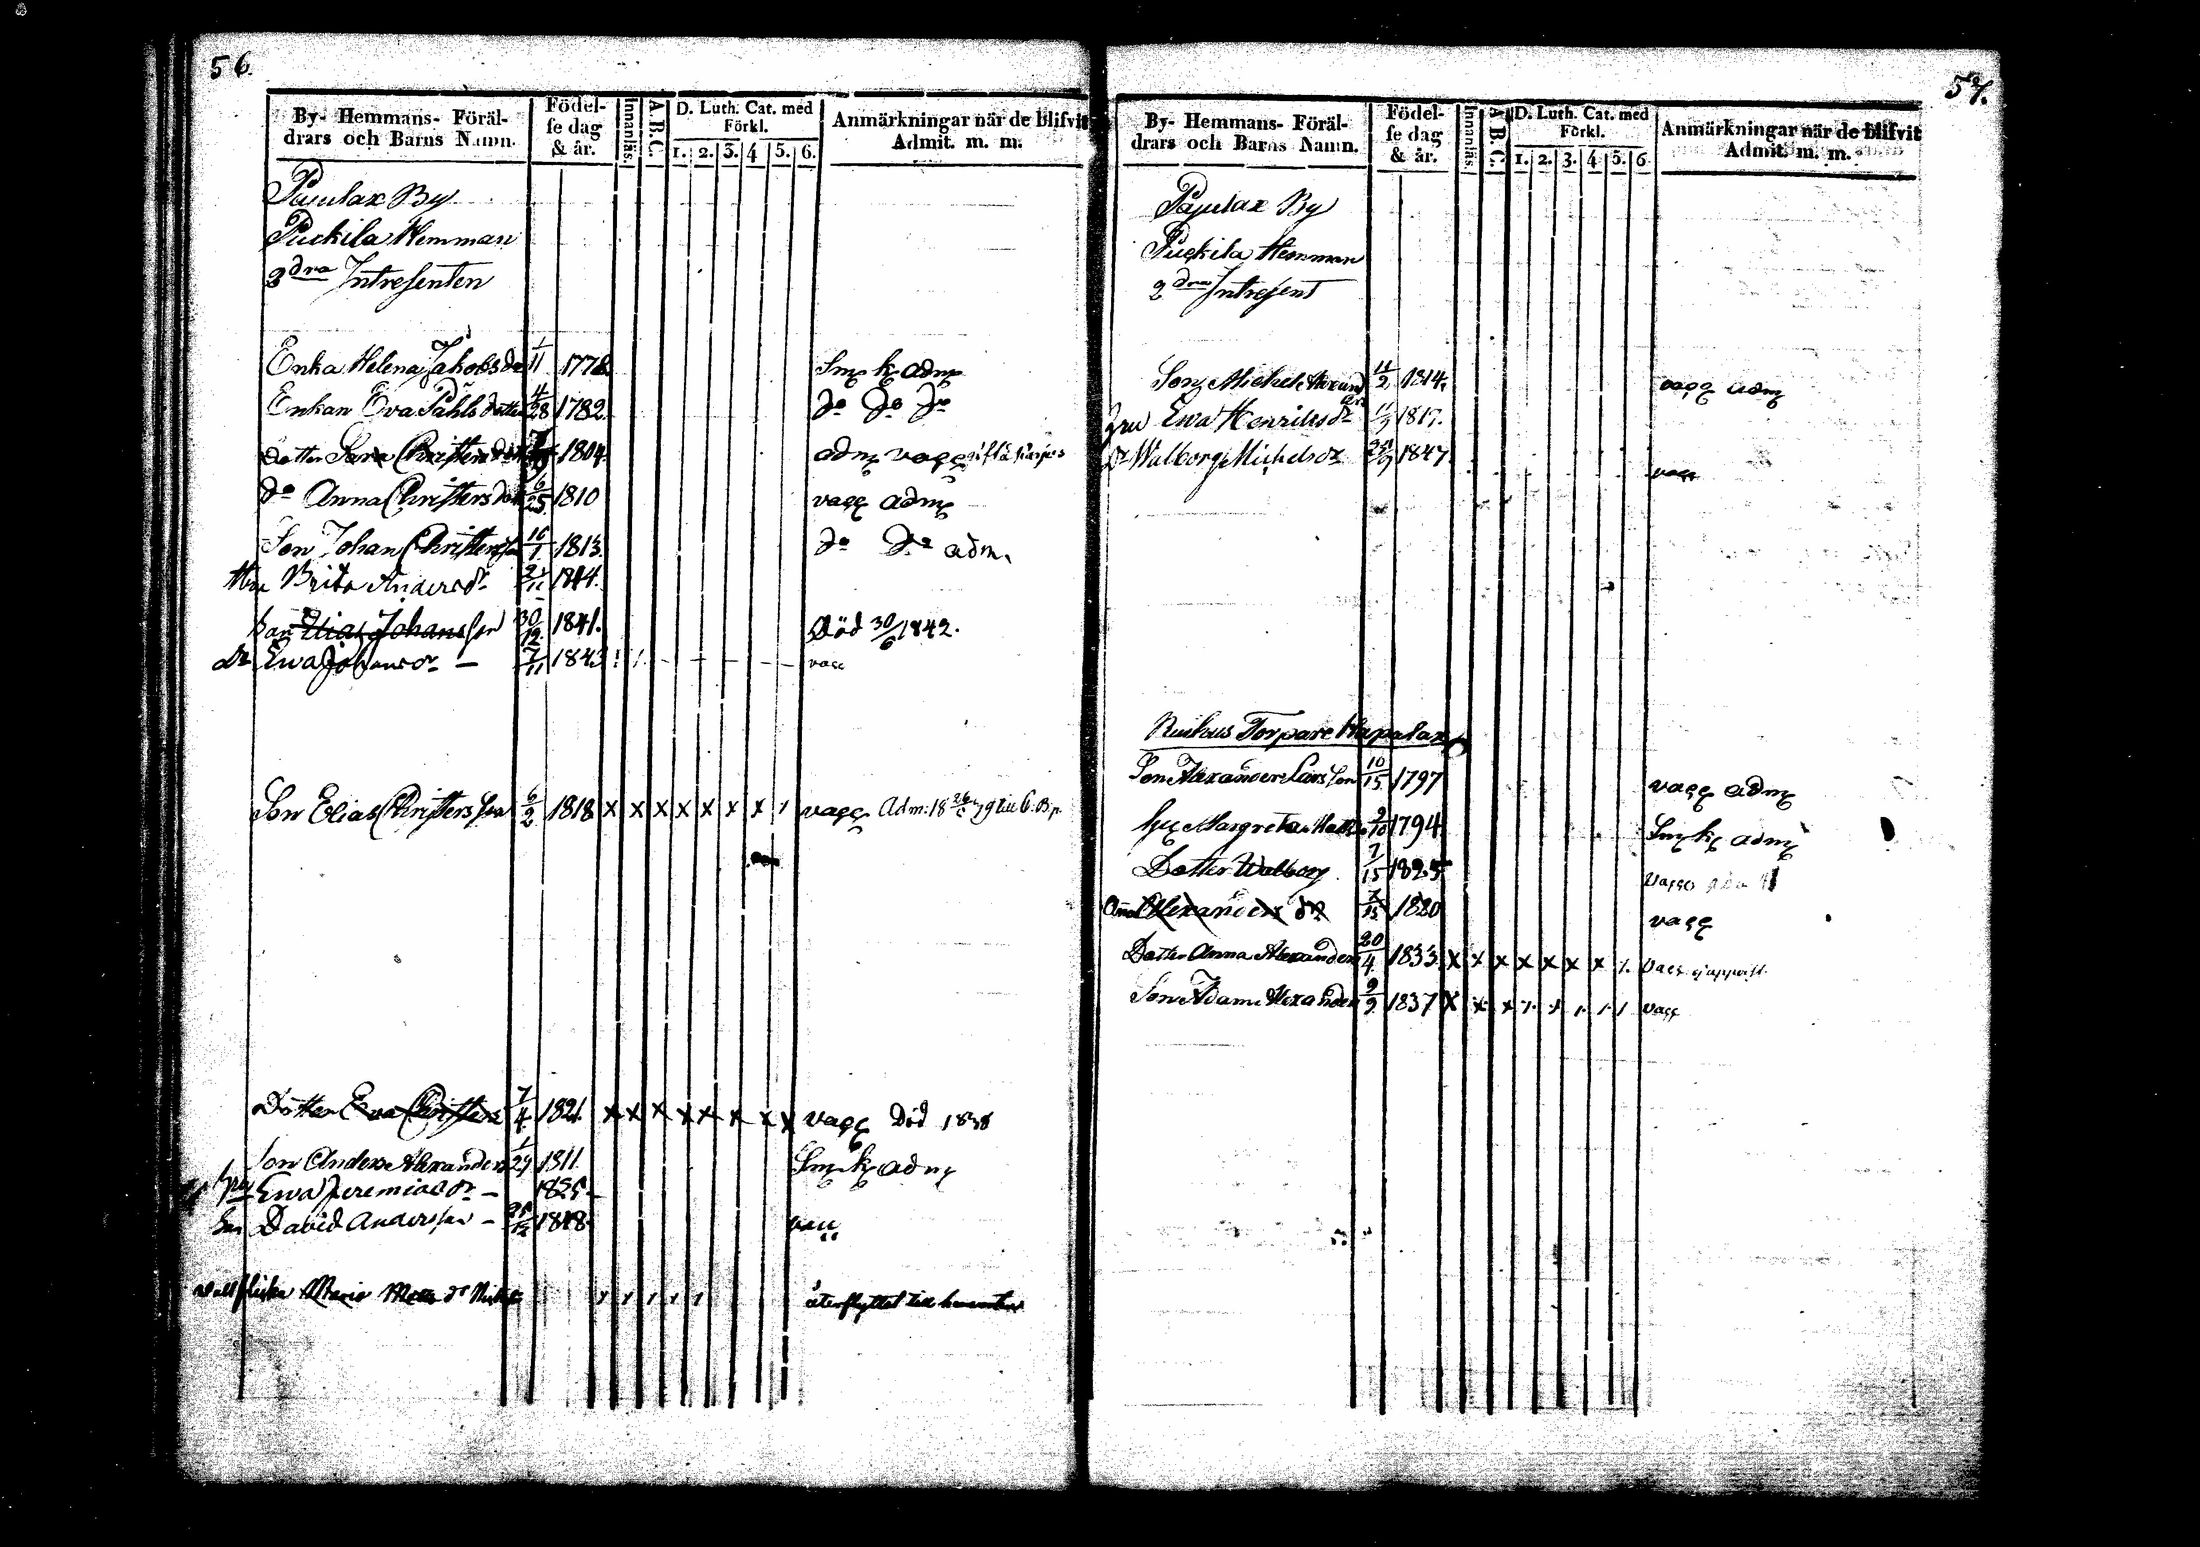 56.
By- Hemmans- Föräl-
drars och Barns Namn.
Födel-
se dag
& år.
Innanläs.
A. B. C.
D. Luth. Cat. med
Förkl.
1. 2. 3. 4 5. 6.
Anmärkningar när de blifvit
Admit. m. m.
Pajulax By
Puckila Hemman
2dra Intresenten
Enka Helena Jakobsdr 1/11 1778. Smk adm
Enkan Eva Påhlsdotter 4/28 1782. Do Do Do
Dotter Sara Christersdotter 1804. adm vacc
do Anna Christersdott 6/25 1810 vacc adm
Son Johan Christersson 16/1 1813. Do Do adm.
Hu Brita Andersdr 1814.
Son Elias Johansson 30/12. 1841. Död 30/6 1842.
Dr Ewa Johansdr — 7/11 1843 vacc
Son Elias Christersson 6/2 1818 x x x x x x x 1 vacc Adm:
Dotter Eva Christers 7/4 1821 x x x x x x x x vacc Död 1838
Son Anders Alexanders 1/24 1811. Smk adm
Ewa Jeremiasdr — 1825.
Son David Andersson — 1848 vacc
Maria återflyttat till
57.
By- Hemmans- Föräl-
drars och Barns Namn.
Födel-
se dag
& år.
Innanläs.
A. B. C.
D. Luth. Cat. med
Förkl.
1. 2. 3. 4 5. 6
Anmärkningar när de blifvit
Admit. m. m.
Pajulax By
Puckila Hemman
2dra Intresent
Son Michel 11/2 1814. vacc adm
Ewa Henriksdr 11/9 1817.
Dr Walborg Michelsdr 1847 vacc
Torpare Hapalax
Son Alexander Larsson 10/15 1797 vacc adm
Margreta 9/10 1794 Smk adm
Dotter Walborg 7/15 1825 vacc
Alexanders dr 7/15 1820 vacc
Dotter Anna Alexanders 20/4 1833. x x x x x x x 1. vacc
Son Adam Alexanders 9/9 1837 x x x 1. x 1. 1. 1 vacc